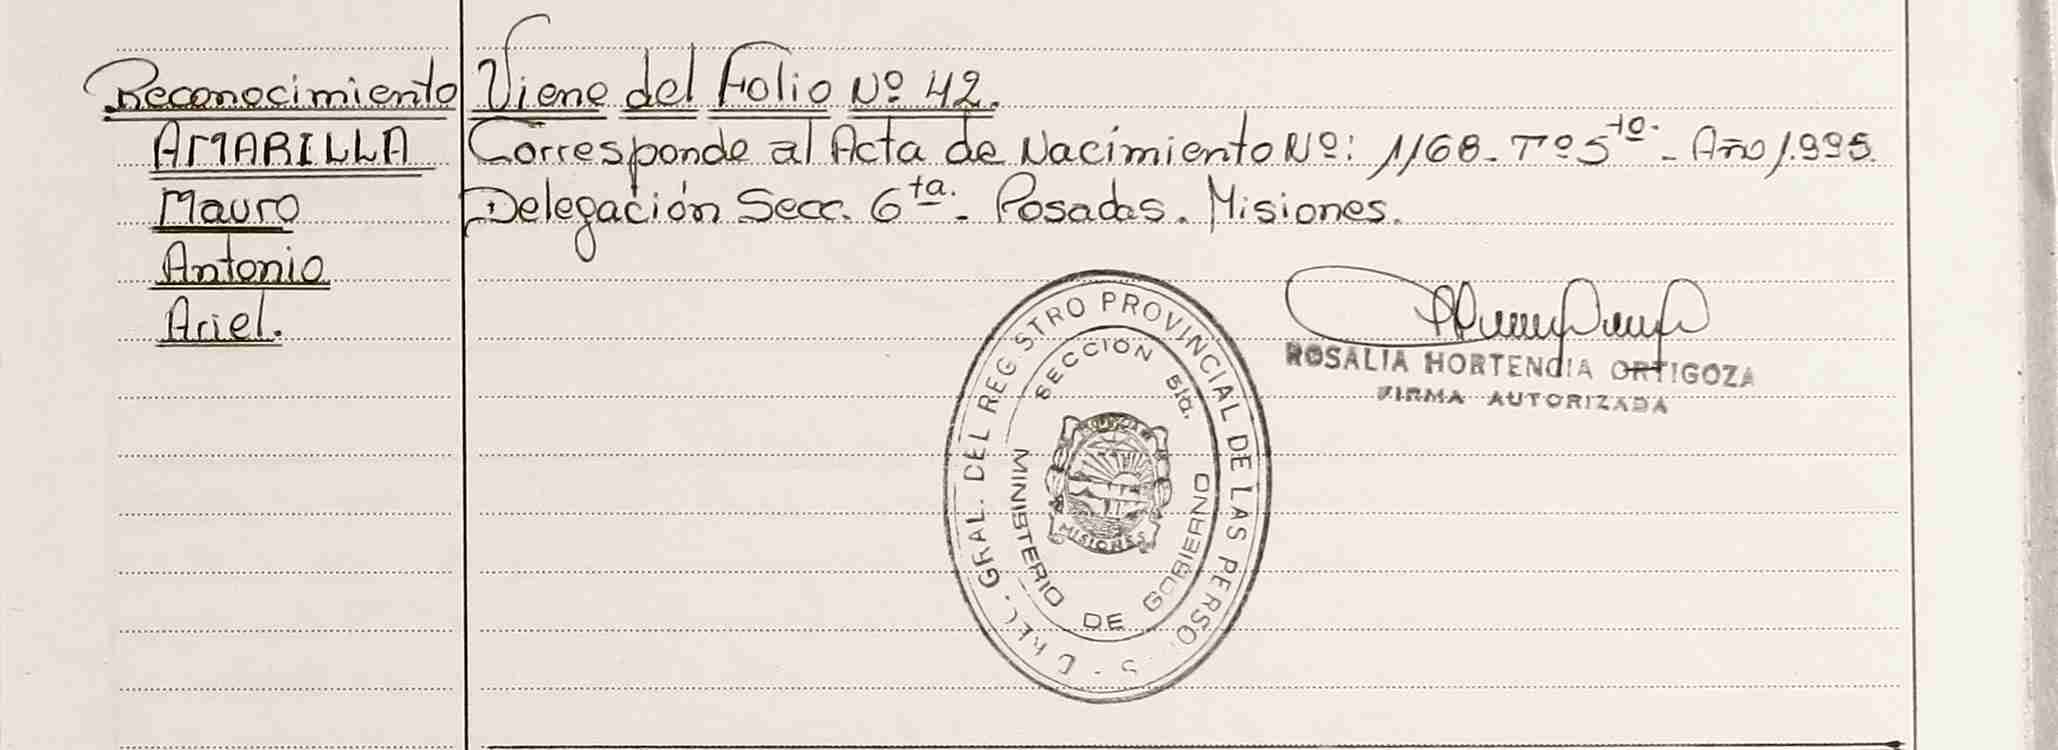 Reconocimiento
AMARILLA
Mauro
Antonio
Ariel.
Viene del Folio Nº 42.
Corresponde al Acta de Nacimiento Nº: 1168. Tº 5to. Año 1.995.
Delegación Secc. 6ta. Posadas. Misiones.
ROSALIA HORTENCIA ORTIGOZA
FIRMA AUTORIZADA
GRAL. DEL REGISTRO PROVINCIAL DE LAS PERSO.
SECCION 5ta.
MISIONES
MINISTERIO DE GOBIERNO